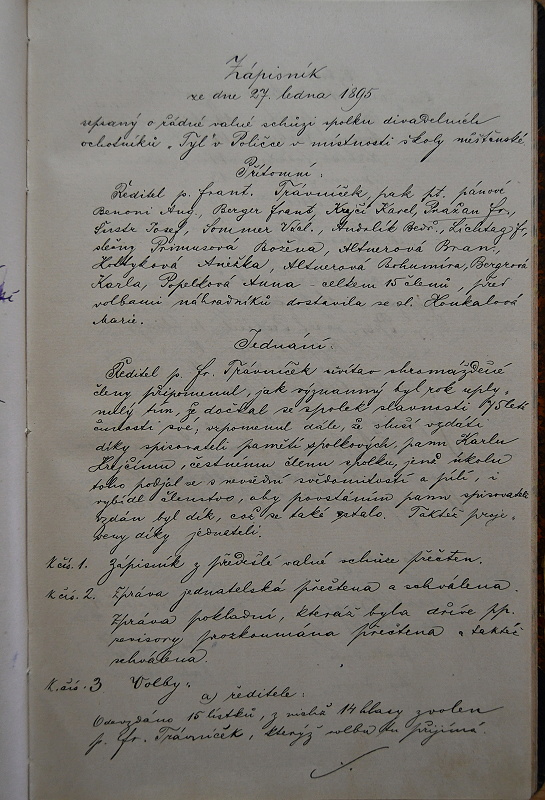 Zápisník
ze dne 27. ledna 1895
sepsaný o řádné valné schůzi spolku divadelních
ochotníků „Tyl“ v Poličce v místnosti školy měšťanské
Přítomni:
Ředitel p. Frant. Trávníček, pak pt. pánové
Benoni Aug, Berger Frant, Krejčí Karel, Pražan Fr.,
Šustr Josef, Sommer Václ., Andrlík Bedř., Lichtag Fr,
slečny Primusová Božena, Altnerová Bran,
Holtyková Anežka, Altnerová Bohumíra, Bergrová
Karla, Popelková Anna – celkem 15 členů, před
volbami náhradníků dostavila se sl. Honkalová
Marie.
Jednání:
Ředitel p. Fr. Trávníček uvítav shromážděné
členy připomenul, jak významný byl rok uply-
nulý tím, že dočkal se spolek slavnosti 75leté
činnosti své, vzpomenul dále, že sluší vzdáti
díky spisovateli pamětí spolkových, panu Karlu
Krejčímu, čestnému členu spolku, jenž úkolu
toho podjal se s nevšední svědomitostí a pílí, i
vybídl členstvo, aby povstáním panu spisovateli
vzdán byl dík, což se také stalo. Taktéž proje-
veny díky jednateli.
K čís. 1. Zápisník z předešlé valné schůze přečten.
K čís. 2. Zpráva jednatelská přečtena a schválena.
Zpráva pokladní, kteráž byla dříve pp.
revisory prozkoumána přečtena a taktéž
schválena.
K. čís. 3 Volby:
a) ředitele:
Odevzdáno 15 lístků, z nichž 14 hlasy zvolen
p. Fr. Trávníček, kterýž volbu tu přijímá.